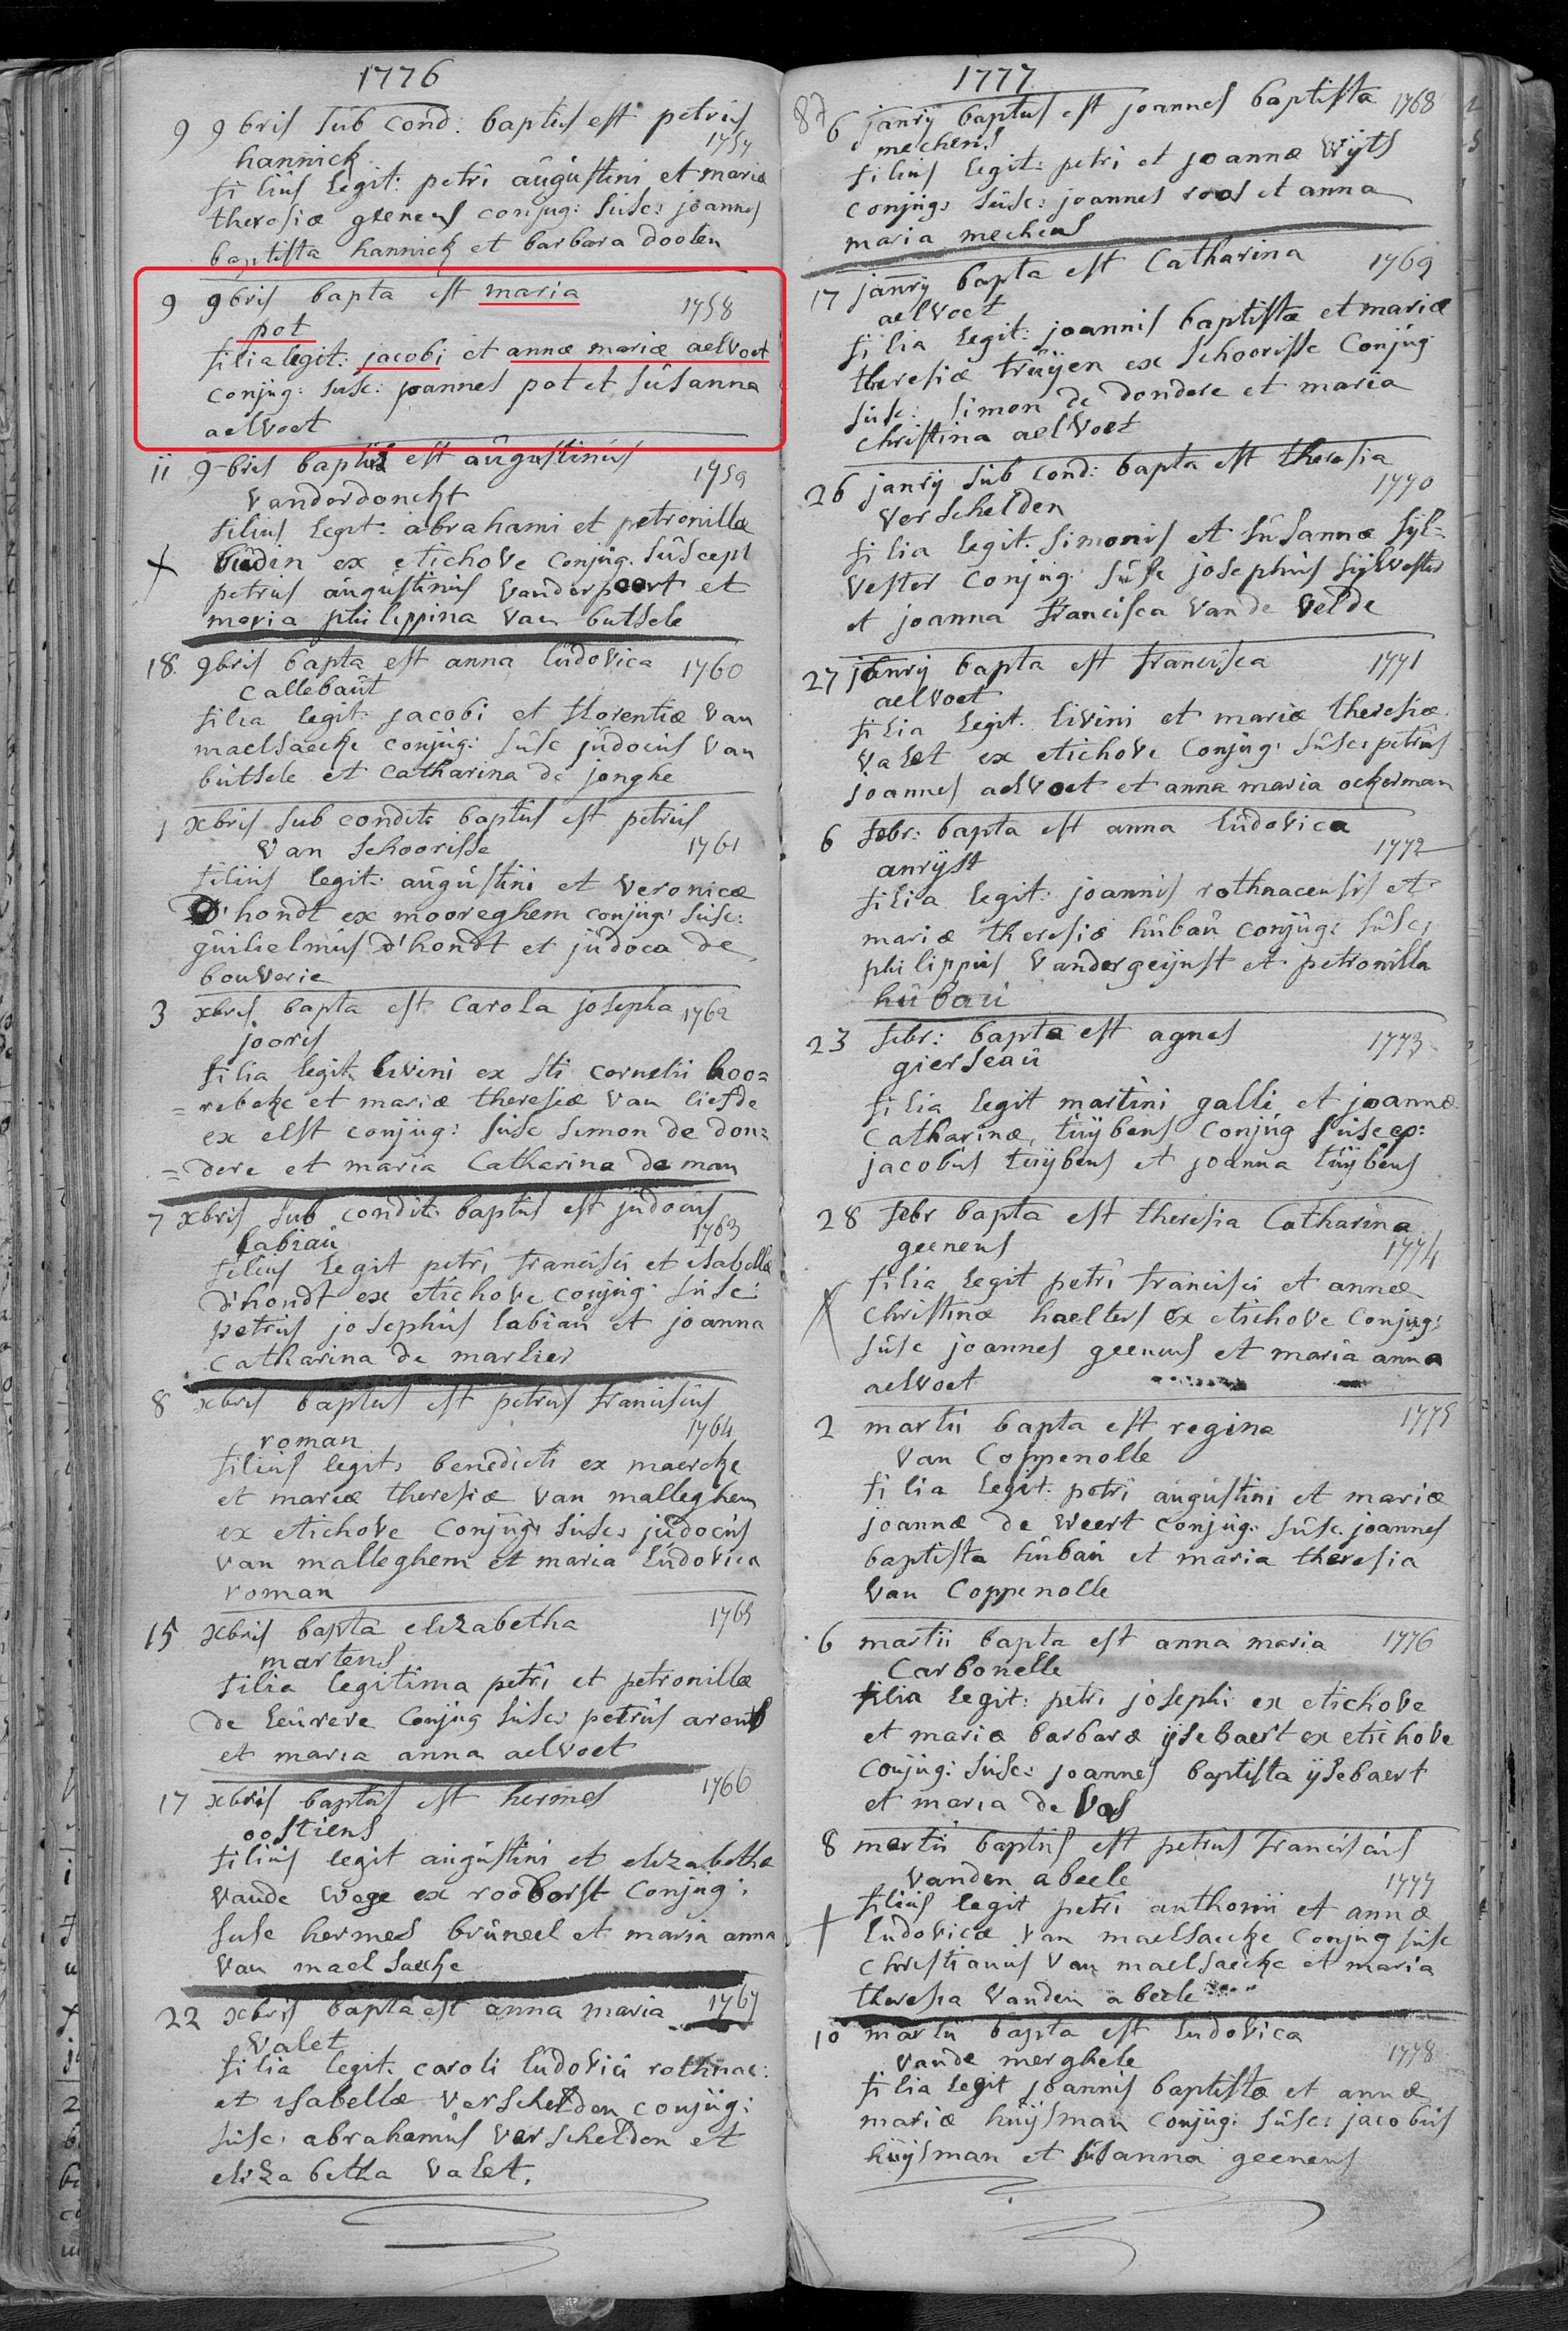 1776
9 9bris sub cond: baptus est petrus
1757
hannick
filius legit: petri augustini et mariæ
theresiæ geenens conjug: susc: joannes
baptista hannick et barbara dooten
9 9bris bapta est maria
1758
pot
filia legit: jacobi et annæ mariæ aelvoet
conjug: susc: joannes pot et susanna
aelvoet
ii 9bris baptus est augustinus
1759
vanderdonckt
filius legit: abrahami et petronillæ
budin ex etichove conjug. suscept
petrus augustinus vanderpoort et
maria philippina van butsele
18 9bris bapta est anna ludovica 1760
callebaut
filia legit: jacobi et florentiæ van
maelsaecke conjug: susc judocus van
butsele et catharina de jonghe
1 xbris sub condit: baptus est petrus
van schoorisse 1761
filius legit: augustini et veronicæ
D'hondt ex mooreghem conjug: susc:
guilielmus d'hondt et judoca de
bouverie
3 xbris bapta est carola josepha 1762
jooris
filia legit livini ex sti cornelii hoo=
=rebeke et mariæ theresiæ van liefde
ex elst conjug: susc simon de don=
=dere et maria catharina de man
7 xbris sub condit: baptus est judocus
1763
labiau
filius legit petri francisci et isabellæ
d'hondt ex etichove conjug: susc:
petrus josephus labiau et joanna
catharina de marlier
8 xbris baptus est petrus franciscus
1764
roman
filius legit: benedicti ex maercke
et mariæ theresiæ van malleghem
ex etichove conjug: susc: judocus
van malleghem et maria ludovica
roman
15 xbris bapta elizabetha 1765
martens
filia legitima petri et petronillæ
de leurere conjug susc: petrus arents
et maria anna aelvoet
17 xbris baptus est hermes 1766
oostiens
filius legit augustini et elizabethæ
vande wege ex rooborst conjug:
susc hermes bruneel et maria anna
van maelsaecke
22 xbris bapta est anna maria 1767
valet
filia legit: caroli ludovici rothnac:
et isabellæ verschelden conjug:
susc: abrahamus verschelden et
elizabetha valet.
1777
87
6 janry baptus est joannes baptista 1768
mechens
filius legit: petri et joannæ wyts
conjug: susc: joannes roos et anna
maria mechens
17 janry bapta est catharina 1769
aelvoet
filia legit: joannis baptistæ et mariæ
theresiæ truyen ex schoorisse conjug
susc: simon de dondere et maria
christina aelvoet
26 janry sub cond: bapta est theresia
1770
verschelden
filia legit. simonis et susannæ syl=
vester conjug: susc josephus sylvester
et joanna francisca vande velde
27 janry bapta est francisca 1771
aelvoet
filia legit. livini et mariæ theresiæ
valet ex etichove conjug: susc: petrus
joannes aelvoet et anna maria ockerman
6 febr: bapta est anna ludovica
1772
anryst
filia legit: joannis rothnacensis et
mariæ theresiæ hubau conjug: susc:
philippus vandergeynst et petronilla
hubau
23 febr: bapta est agnes 1773
gierseau
filia legit martini galli et joannæ
catharinæ tuybens conjug suscep:
jacobus tuybens et joanna tuybens
28 febr bapta est theresia catharina
1774
geenens
filia legit petri francisci et annæ
christinæ haelters ex etichove conjug:
susc joannes geenens et maria anna
aelvoet
2 martii bapta est regina 1775
van coppenolle
filia legit: petri augustini et mariæ
joannæ de weert conjug: susc. joannes
baptista hubau et maria theresia
van coppenolle
6 martii bapta est anna maria 1776
carbonelle
filia legit: petri josephi ex etichove
et mariæ barbaræ ysebaert ex etichove
conjug: susc: joannes baptista ysebaert
et maria de vos
8 martii baptus est petrus franciscus
vanden abeele 1777
filius legit petri anthonii et annæ
ludovicæ van maelsaecke conjug susc
christianus van maelsaecke et maria
theresia vanden abeele
10 martii bapta est ludovica
1778
vande merghele
filia legit joannis baptistæ et annæ
mariæ huysman conjug: susc: jacobus
huysman et susanna geenens